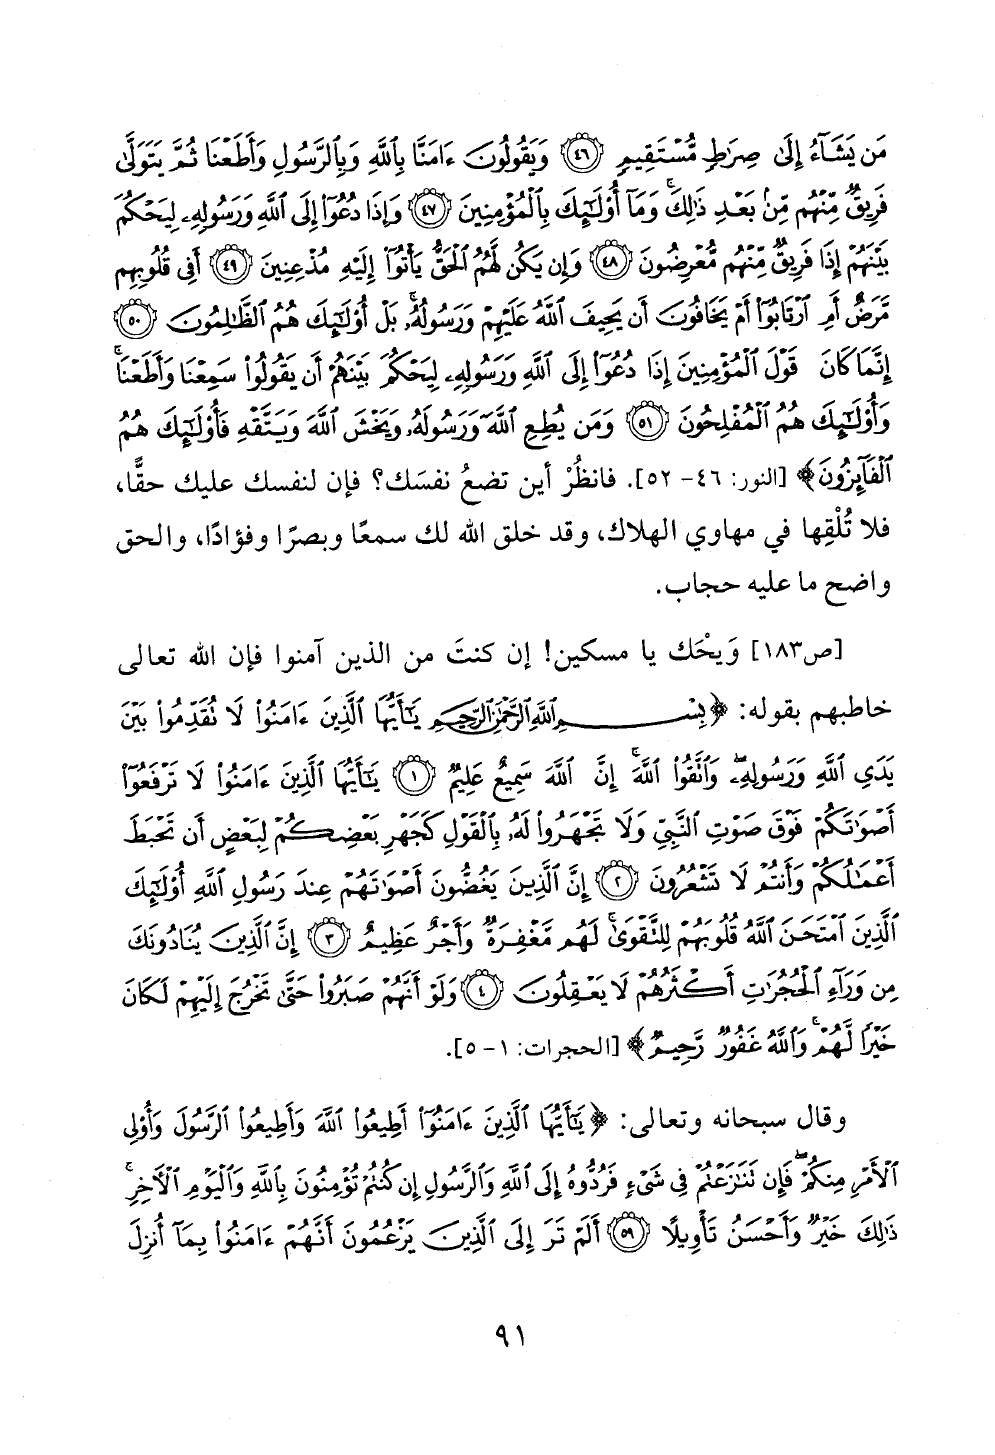 مَن يَشَآءُ إِلَىٰ صِرَٰطٍ مُّسْتَقِيمٍ ﴿٤٦﴾ وَيَقُولُونَ ءَامَنَّا بِٱللَّهِ وَبِٱلرَّسُولِ وَأَطَعْنَا ثُمَّ يَتَوَلَّىٰ
فَرِيقٌ مِّنْهُم مِّنۢ بَعْدِ ذَٰلِكَ ۚ وَمَآ أُو۟لَٰٓئِكَ بِٱلْمُؤْمِنِينَ ﴿٤٧﴾ وَإِذَا دُعُوٓا۟ إِلَى ٱللَّهِ وَرَسُولِهِۦ لِيَحْكُمَ
بَيْنَهُمْ إِذَا فَرِيقٌ مِّنْهُم مُّعْرِضُونَ ﴿٤٨﴾ وَإِن يَكُن لَّهُمُ ٱلْحَقُّ يَأْتُوٓا۟ إِلَيْهِ مُذْعِنِينَ ﴿٤٩﴾ أَفِى قُلُوبِهِم
مَّرَضٌ أَمِ ٱرْتَابُوٓا۟ أَمْ يَخَافُونَ أَن يَحِيفَ ٱللَّهُ عَلَيْهِمْ وَرَسُولُهُۥ ۚ بَلْ أُو۟لَٰٓئِكَ هُمُ ٱلظَّٰلِمُونَ ﴿٥٠﴾
إِنَّمَا كَانَ قَوْلَ ٱلْمُؤْمِنِينَ إِذَا دُعُوٓا۟ إِلَى ٱللَّهِ وَرَسُولِهِۦ لِيَحْكُمَ بَيْنَهُمْ أَن يَقُولُوا۟ سَمِعْنَا وَأَطَعْنَا ۚ
وَأُو۟لَٰٓئِكَ هُمُ ٱلْمُفْلِحُونَ ﴿٥١﴾ وَمَن يُطِعِ ٱللَّهَ وَرَسُولَهُۥ وَيَخْشَ ٱللَّهَ وَيَتَّقْهِ فَأُو۟لَٰٓئِكَ هُمُ
ٱلْفَآئِزُونَ﴾ [النور: ٤٦- ٥٢]. فانظُرْ أين تضعُ نفسَك؟ فإن لنفسك عليك حقًّا،
فلا تُلْقِها في مهاوي الهلاك، وقد خلق الله لك سمعًا وبصرًا وفؤادًا، والحق
واضح ما عليه حجاب.
[ص١٨٣] وَيحْك يا مسكين! إن كنتَ من الذين آمنوا فإن الله تعالى
خاطبهم بقوله: ﴿بِسْمِ ٱللَّهِ ٱلرَّحْمَٰنِ ٱلرَّحِيمِ يَٰٓأَيُّهَا ٱلَّذِينَ ءَامَنُوا۟ لَا تُقَدِّمُوا۟ بَيْنَ
يَدَىِ ٱللَّهِ وَرَسُولِهِۦ ۖ وَٱتَّقُوا۟ ٱللَّهَ ۚ إِنَّ ٱللَّهَ سَمِيعٌ عَلِيمٌ ﴿١﴾ يَٰٓأَيُّهَا ٱلَّذِينَ ءَامَنُوا۟ لَا تَرْفَعُوٓا۟
أَصْوَٰتَكُمْ فَوْقَ صَوْتِ ٱلنَّبِىِّ وَلَا تَجْهَرُوا۟ لَهُۥ بِٱلْقَوْلِ كَجَهْرِ بَعْضِكُمْ لِبَعْضٍ أَن تَحْبَطَ
أَعْمَٰلُكُمْ وَأَنتُمْ لَا تَشْعُرُونَ ﴿٢﴾ إِنَّ ٱلَّذِينَ يَغُضُّونَ أَصْوَٰتَهُمْ عِندَ رَسُولِ ٱللَّهِ أُو۟لَٰٓئِكَ
ٱلَّذِينَ ٱمْتَحَنَ ٱللَّهُ قُلُوبَهُمْ لِلتَّقْوَىٰ ۚ لَهُم مَّغْفِرَةٌ وَأَجْرٌ عَظِيمٌ ﴿٣﴾ إِنَّ ٱلَّذِينَ يُنَادُونَكَ
مِن وَرَآءِ ٱلْحُجُرَٰتِ أَكْثَرُهُمْ لَا يَعْقِلُونَ ﴿٤﴾ وَلَوْ أَنَّهُمْ صَبَرُوا۟ حَتَّىٰ تَخْرُجَ إِلَيْهِمْ لَكَانَ
خَيْرًا لَّهُمْ ۚ وَٱللَّهُ غَفُورٌ رَّحِيمٌ﴾ [الحجرات: ١- ٥].
وقال سبحانه وتعالى: ﴿يَٰٓأَيُّهَا ٱلَّذِينَ ءَامَنُوٓا۟ أَطِيعُوا۟ ٱللَّهَ وَأَطِيعُوا۟ ٱلرَّسُولَ وَأُو۟لِى
ٱلْأَمْرِ مِنكُمْ ۖ فَإِن تَنَٰزَعْتُمْ فِى شَىْءٍ فَرُدُّوهُ إِلَى ٱللَّهِ وَٱلرَّسُولِ إِن كُنتُمْ تُؤْمِنُونَ بِٱللَّهِ وَٱلْيَوْمِ ٱلْءَاخِرِ ۚ
ذَٰلِكَ خَيْرٌ وَأَحْسَنُ تَأْوِيلًا ﴿٥٩﴾ أَلَمْ تَرَ إِلَى ٱلَّذِينَ يَزْعُمُونَ أَنَّهُمْ ءَامَنُوا۟ بِمَآ أُنزِلَ
٩١